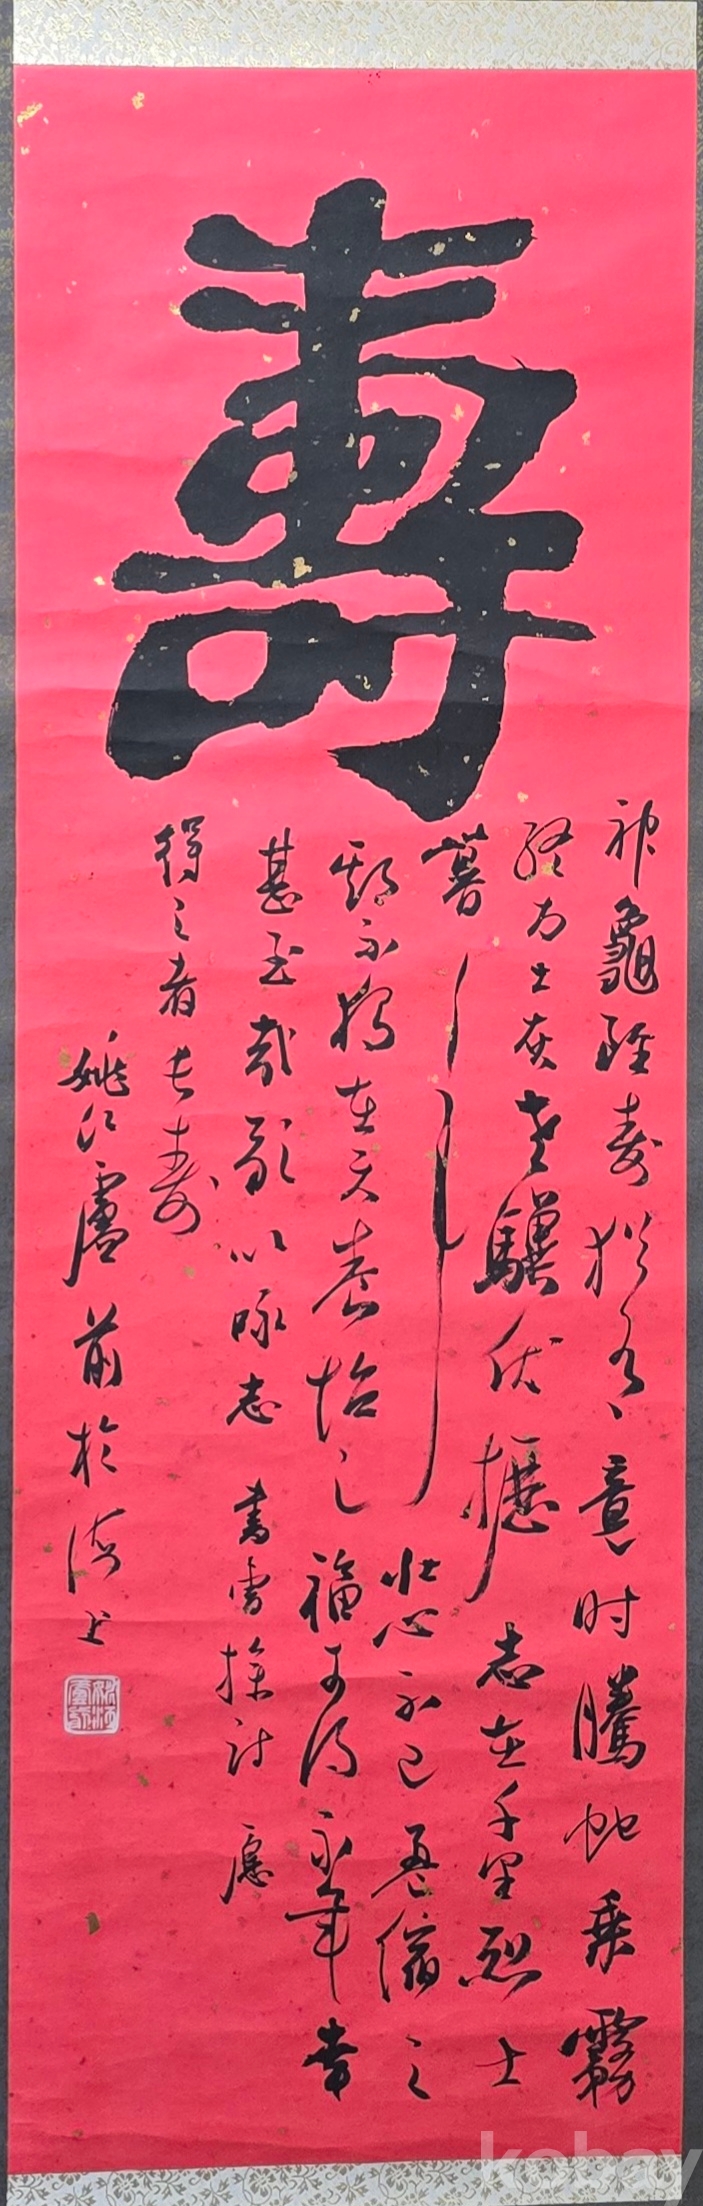 壽
神龜雖壽猶有竟时騰蛇乘霧
終为土灰老驥伏櫪志在千里烈士
暮年壯心不已盈縮之
期不獨在天養怡之福可得永年幸
甚至哉歌以咏志 書曹操詩 愿
得之者长壽
姚江盧前於海上
kobay